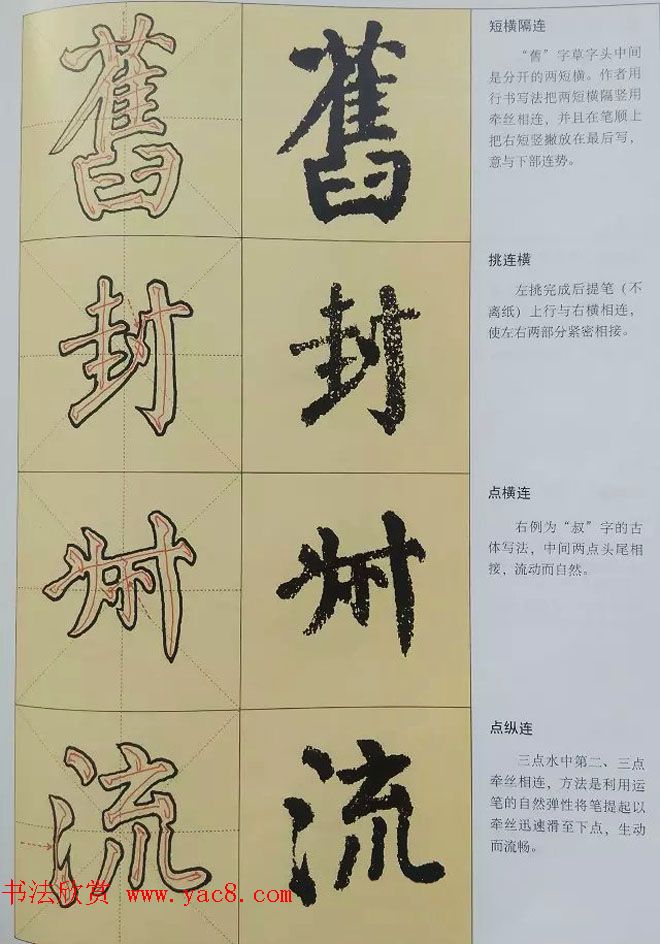 舊
舊
短横隔连
“舊”字草字头中间
是分开的两短横。作者用
行书写法把两短横隔竖用
牵丝相连，并且在笔顺上
把右短竖撇放在最后写，
意与下部连势。
封
封
挑连横
左挑完成后提笔（不
离纸）上行与右横相连，
使左右两部分紧密相接。
点横连
右例为“叔”字的古
体写法，中间两点头尾相
接，流动而自然。
流
流
点纵连
三点水中第二、三点
牵丝相连，方法是利用运
笔的自然弹性将笔提起以
牵丝迅速滑至下点，生动
而流畅。
书法欣赏 www.yac8.com